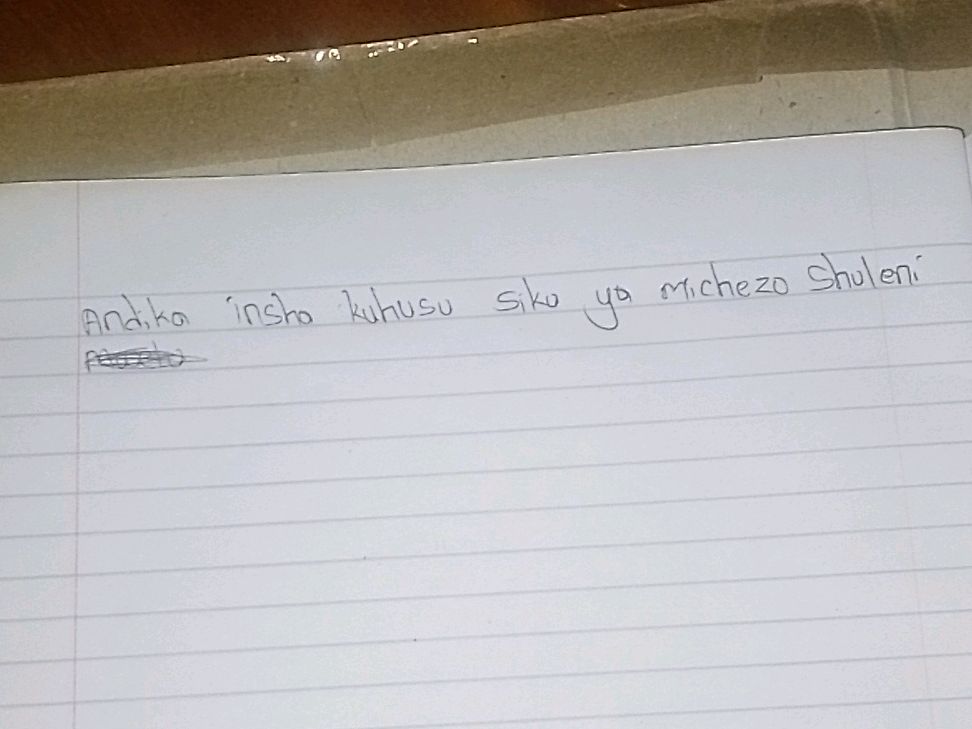 Andika insha kuhusu siku ya michezo Shuleni